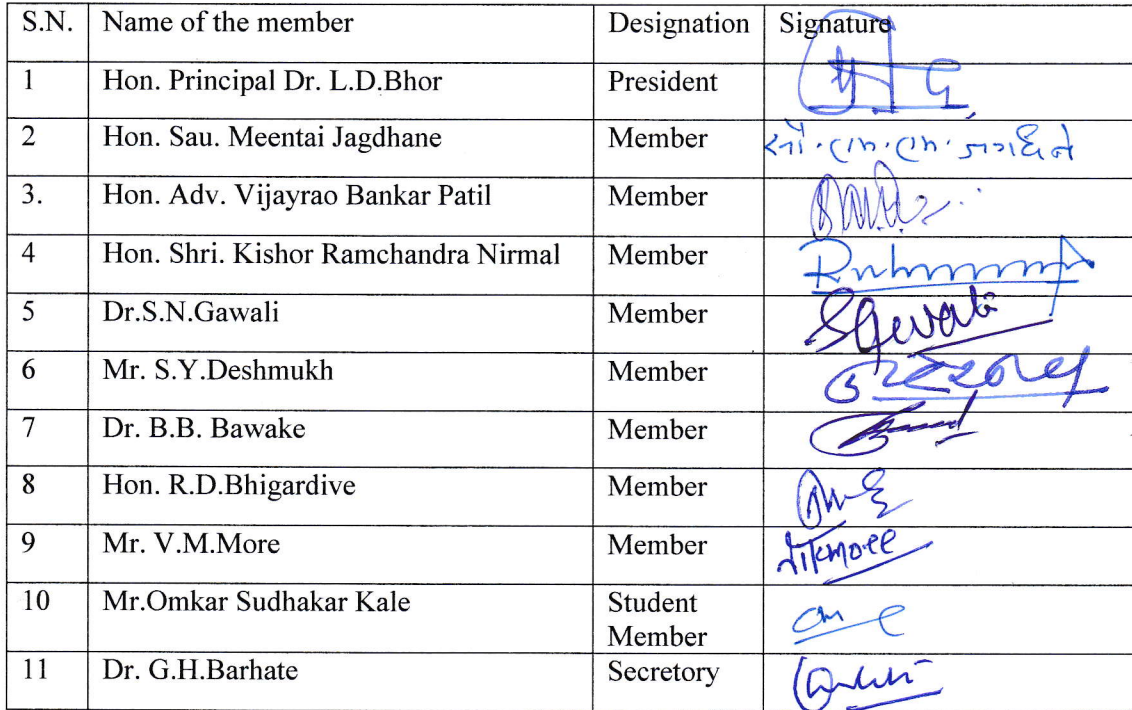 S.N. Name of the member Designation Signature
1 Hon. Principal Dr. L.D.Bhor President
2 Hon. Sau. Meentai Jagdhane Member
3. Hon. Adv. Vijayrao Bankar Patil Member
4 Hon. Shri. Kishor Ramchandra Nirmal Member
5 Dr.S.N.Gawali Member
6 Mr. S.Y.Deshmukh Member
7 Dr. B.B. Bawake Member
8 Hon. R.D.Bhigardive Member
9 Mr. V.M.More Member
10 Mr.Omkar Sudhakar Kale Student
Member
11 Dr. G.H.Barhate Secretory